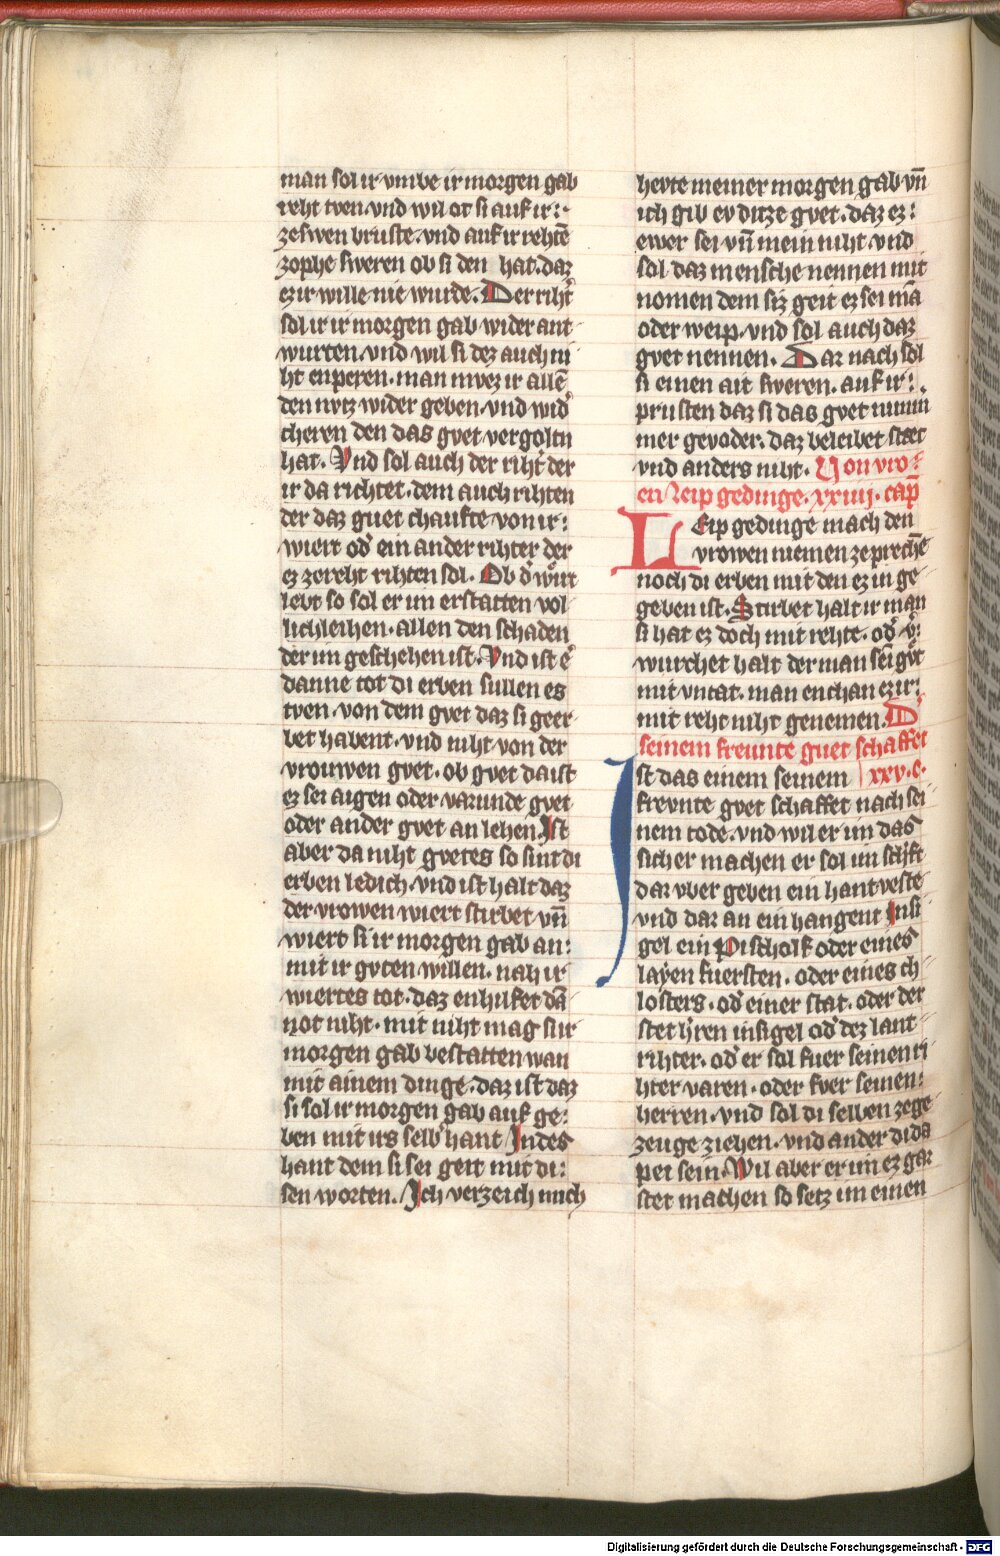 man sol ir vmbe ir morgen gab
reht tven. vnd wil ot si auf ir :·
zeswen bruste. vnd auf ir rehtē
zophe sweren ob si den hat. daz
ez ir wille nie wurde. Der riht̾
sol ir ir morgen gab wider ant
wurten. vnd wil si dez auch ni
ht enperen. man mvez ir allē
den nvtz wider geben. vnd wid̾
cheren den das gvet vergoltn
hat. Vnd sol auch der riht̾ der
ir da richtet. dem auch rihten
der daz guet chaufte von ir :
wiert od̾ ein ander rihter der
ez zereht rihten sol. Ob d̾ wirt
lebt so sol er im erstatten vol
lichleihen. allen den schaden
der im geschehen ist. Vnd ist e̾
danne tot di erben sullen es
tven. von dem gvet daz si geer
bet habent. vnd niht von der
vrouwen gvet. ob gvet da ist
ez sei aigen oder varunde gvet
oder ander gvet an lehen. Ist
aber da niht gvetes so sint di
erben ledich. vnd ist halt daz
der vrowen wiert stirbet vn̄
wiert si ir morgen gab an :
mit ir gvten willen. nah ir
wiertes tot. daz enhilfet dā
not niht. mit niht mag si ir
morgen gab bestatten wan
mit ainem dinge. daz ist daz
si sol ir morgen gab auf ge :
ben mit irs selb̾ hant Indes
hant dem si sei geit mit di :
sen worten. Ich verzeich mich
hevte meiner morgen gab vn̄
ich gib ev ditze gvet. daz ez :
ewer sei vn̄ mein niht. vnd
sol daz mensche nennen mit
nomen dem siz geit ez sei mā
oder weip. vnd sol auch daz
gvet nennen. Dar nach sol
si einen ait sweren. auf ir : .
prusten daz si das gvet nimm
mer gevoder. daz beleibet stæt
vnd anders niht. Von vro :
en Leip gedinge. xxiiii. cap̄
LEip gedinge mach den
vrowen niemen zeprechē
noch di erben mit den ez in ge
geben ist. Stirbet halt ir man
si hat ez doch mit rehte. od̾ v̾ :
wurchet halt der man sei gvt
mit vntat. man enchan ez ir :
mit reht niht genemen. D̾
seinem freunte guet schaffet
Ist das einem seinem xxv. c.
frevnte gvet schaffet nach sei
nem tode. vnd wil er im das
sicher machen er sol im schrift
dar vber geben ein hantveste
vnd dar an ein hangent Insi
gel ein Pischolf oder eines
layen fuersten. oder eines ch
losters. od̾ einer stat. oder der
stet h̾ren insigel od̾ dez lant
rihter. od̾ er sol fuer seinen ri
hter varen. oder fver seinen :
herren. vnd sol di selben zege
zeuge ziehen. vnd ander di da
pei sein. Wil aber er im ez gar
stet machen so setz im einen
Digitalisierung gefördert durch die Deutsche Forschungsgemeinschaft - DFG